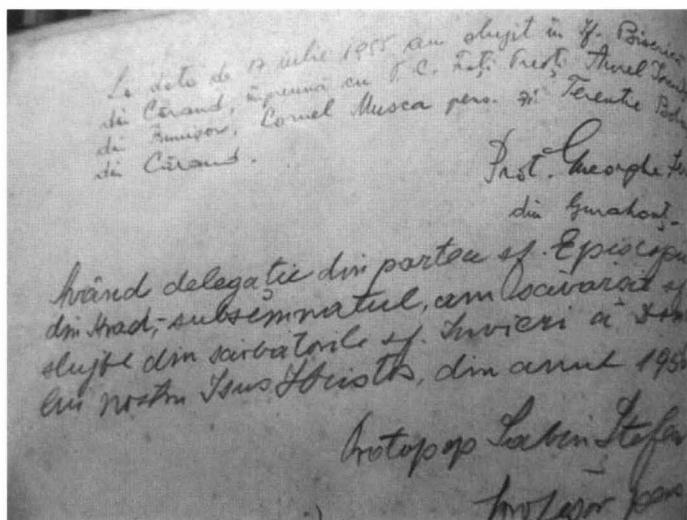 La data de 17 iulie 1955 am slujit în Sf. Biserică
din Cărand, împreună cu P. C. Frați Preoți Aurel
din Cornel Musca pens. și Terentie
din Cărand.
Prot. Gheorghe
din Gurahonț
Având delegație din partea sf. Episcop
din Arad, subsemnatul, am săvârșit sf
slujbe din sărbătorile sf. Învieri a
lui nostru Isus Hristos, din anul 195
Protopop Sabin Ștefe
profesor pens